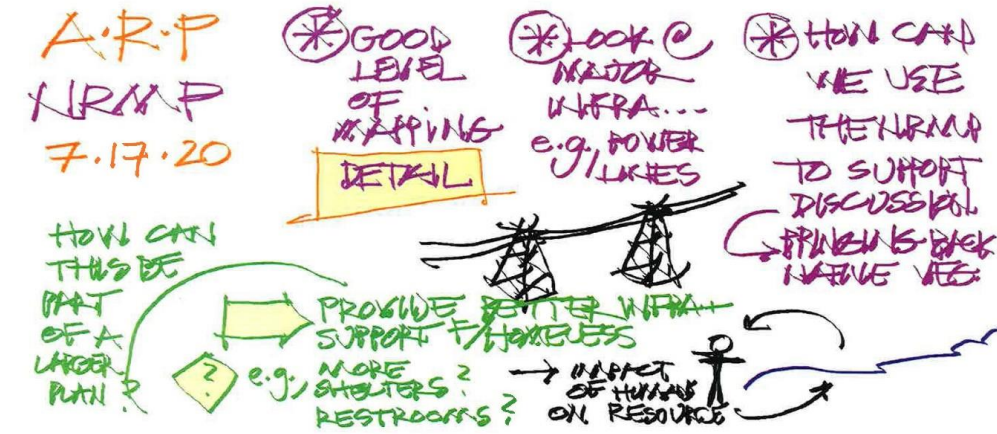 A.R.P
NRMP
7.17.20
GOOD
LEVEL
OF
MAPPING
DETAIL
LOOK @
MAJOR
INFRA...
e.g., POWER
LINES
HOW CAN
WE USE
THE NRMP
TO SUPPORT
DISCUSSION
BRINGING BACK
NATIVE VEG.
HOW CAN
THIS BE
PART
OF A
LARGER
PLAN?
PROVIDE BETTER INFRA +
SUPPORT F/HOMELESS
?
e.g., MORE
SHELTERS?
RESTROOMS?
→ IMPACT
OF HUMANS
ON RESOURCE